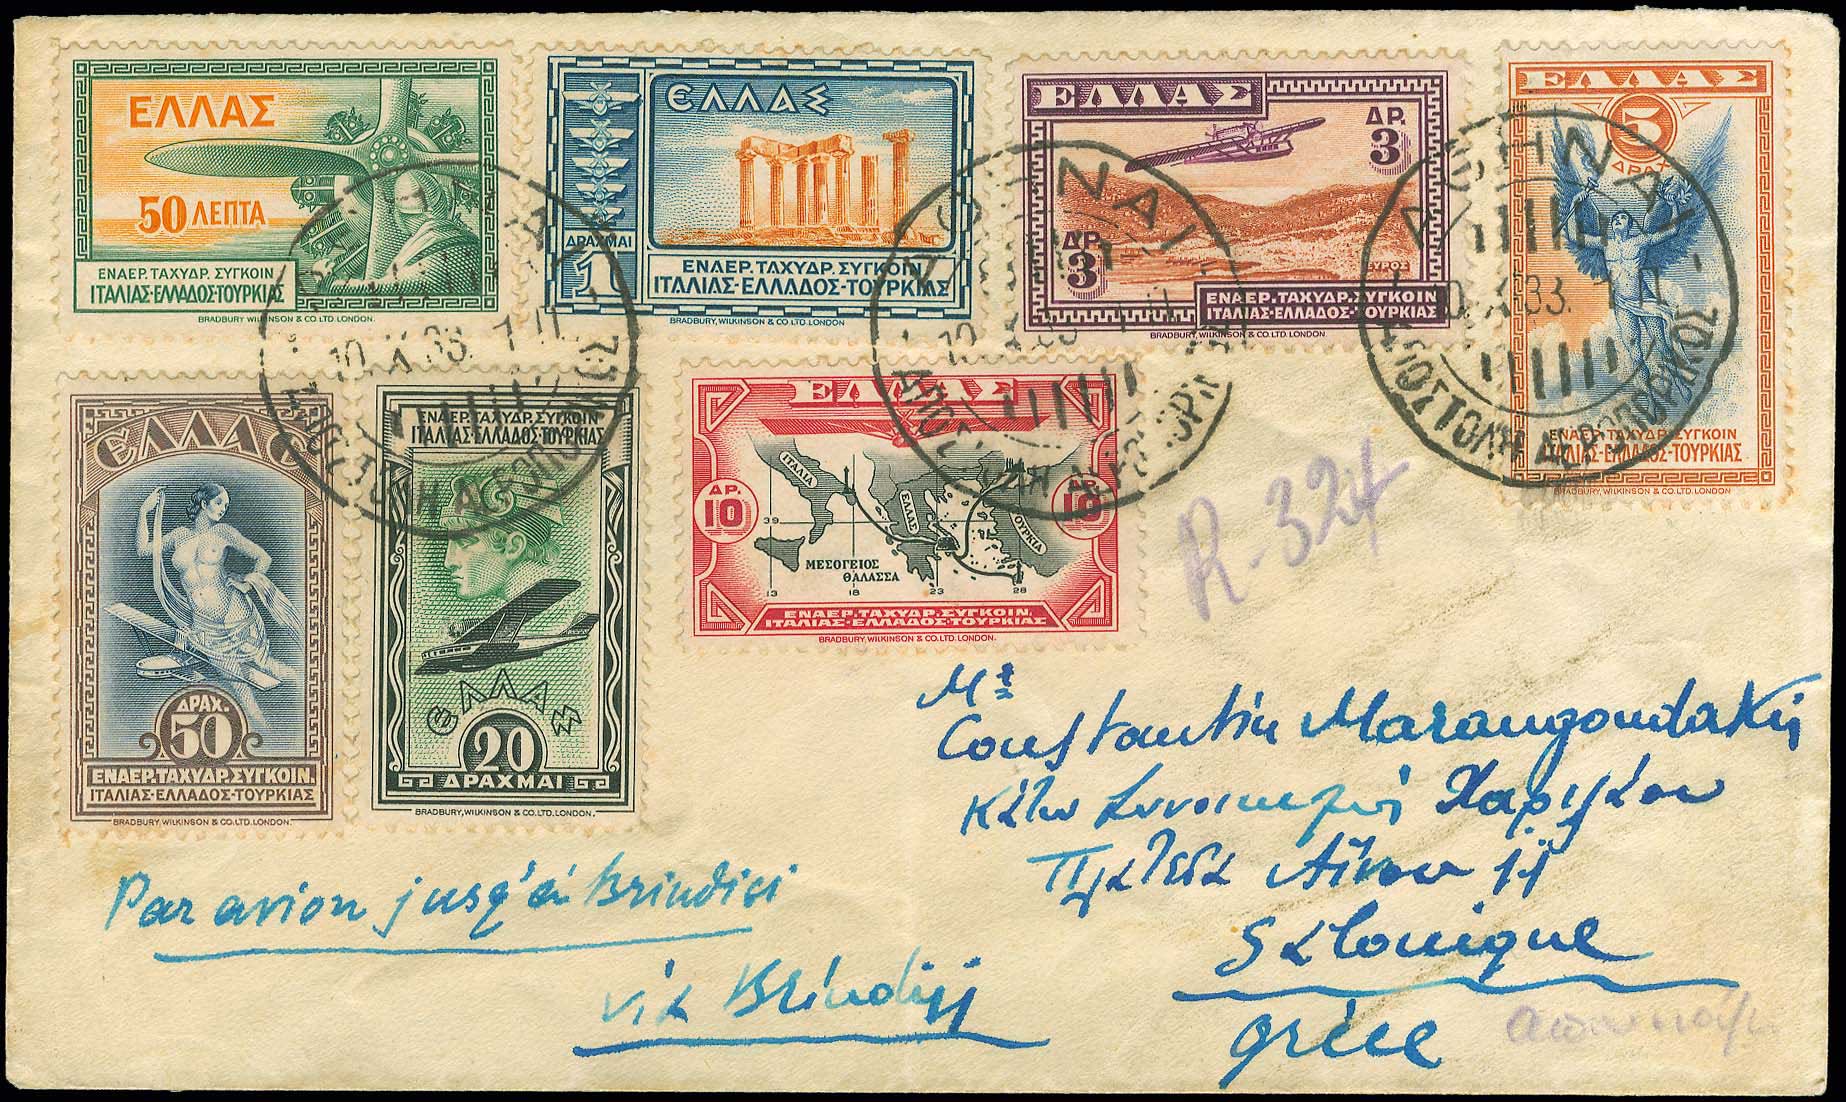 ΕΛΛΑΣ
50 ΛΕΠΤΑ
ΕΝΑΕΡ. ΤΑΧΥΔΡ. ΣΥΓΚΟΙΝ
ΙΤΑΛΙΑΣ-ΕΛΛΑΔΟΣ-ΤΟΥΡΚΙΑΣ
BRADBURY, WILKINSON & CO. LTD. LONDON.
ΕΛΛΑΣ
ΔΡΑΧΜΑΙ
1
ΕΝΑΕΡ. ΤΑΧΥΔΡ. ΣΥΓΚΟΙΝ
ΙΤΑΛΙΑΣ-ΕΛΛΑΔΟΣ-ΤΟΥΡΚΙΑΣ
BRADBURY, WILKINSON & CO. LTD. LONDON
ΕΛΛΑΣ
ΔΡ.
3
ΔΡ.
3
ΣΥΡΟΣ
ΕΝΑΕΡ. ΤΑΧΥΔΡ. ΣΥΓΚΟΙΝ
ΙΤΑΛΙΑΣ-ΕΛΛΑΔΟΣ-ΤΟΥΡΚΙΑΣ
BRADBURY, WILKINSON & CO. LTD. LONDON.
ΕΛΛΑΣ
5
ΔΡΑΧ.
ΕΝΑΕΡ. ΤΑΧΥΔΡ. ΣΥΓΚΟΙΝ
ΙΤΑΛΙΑΣ-ΕΛΛΑΔΟΣ-ΤΟΥΡΚΙΑΣ
BRADBURY, WILKINSON & CO. LTD. LONDON
ΑΘΗΝΑΙ
10. X. 33. 7-11
ΑΠΟΣΤΟΛΗ ΑΕΡΟΠΟΡΙΚΩΣ
ΑΘΗΝΑΙ
10. X. 33. 7-11
ΑΘΗΝΑΙ
10. X. 33. 7-11
ΑΠΟΣΤΟΛΗ ΑΕΡΟΠΟΡΙΚΩΣ
ΕΛΛΑΣ
ΔΡΑΧ.
50
ΕΝΑΕΡ. ΤΑΧΥΔΡ. ΣΥΓΚΟΙΝ.
ΙΤΑΛΙΑΣ-ΕΛΛΑΔΟΣ-ΤΟΥΡΚΙΑΣ
BRADBURY, WILKINSON & CO. LTD. LONDON.
ΕΝΑΕΡ. ΤΑΧΥΔΡ. ΣΥΓΚΟΙΝ
ΙΤΑΛΙΑΣ-ΕΛΛΑΔΟΣ-ΤΟΥΡΚΙΑΣ
ΕΛΛΑΣ
20
ΔΡΑΧΜΑΙ
BRADBURY, WILKINSON & CO. LTD. LONDON.
ΕΛΛΑΣ
ΙΤΑΛΙΑ
ΕΛΛΑΣ
ΤΟΥΡΚΙΑ
ΔΡ.
10
ΔΡ.
10
39
ΜΕΣΟΓΕΙΟΣ
ΘΑΛΑΣΣΑ
13 18 23 28
ΕΝΑΕΡ. ΤΑΧΥΔΡ. ΣΥΓΚΟΙΝ.
ΙΤΑΛΙΑΣ-ΕΛΛΑΔΟΣ-ΤΟΥΡΚΙΑΣ
BRADBURY, WILKINSON & CO. LTD. LONDON.
R-324
Mr
Constantin Marangoudakis
Κάτω Συνοικισμὸς Χαριλάου
Πλατεῖα Αἴνου 11
Salonique
grèce
Par avion jusq'à Brindisi
via Brindisi